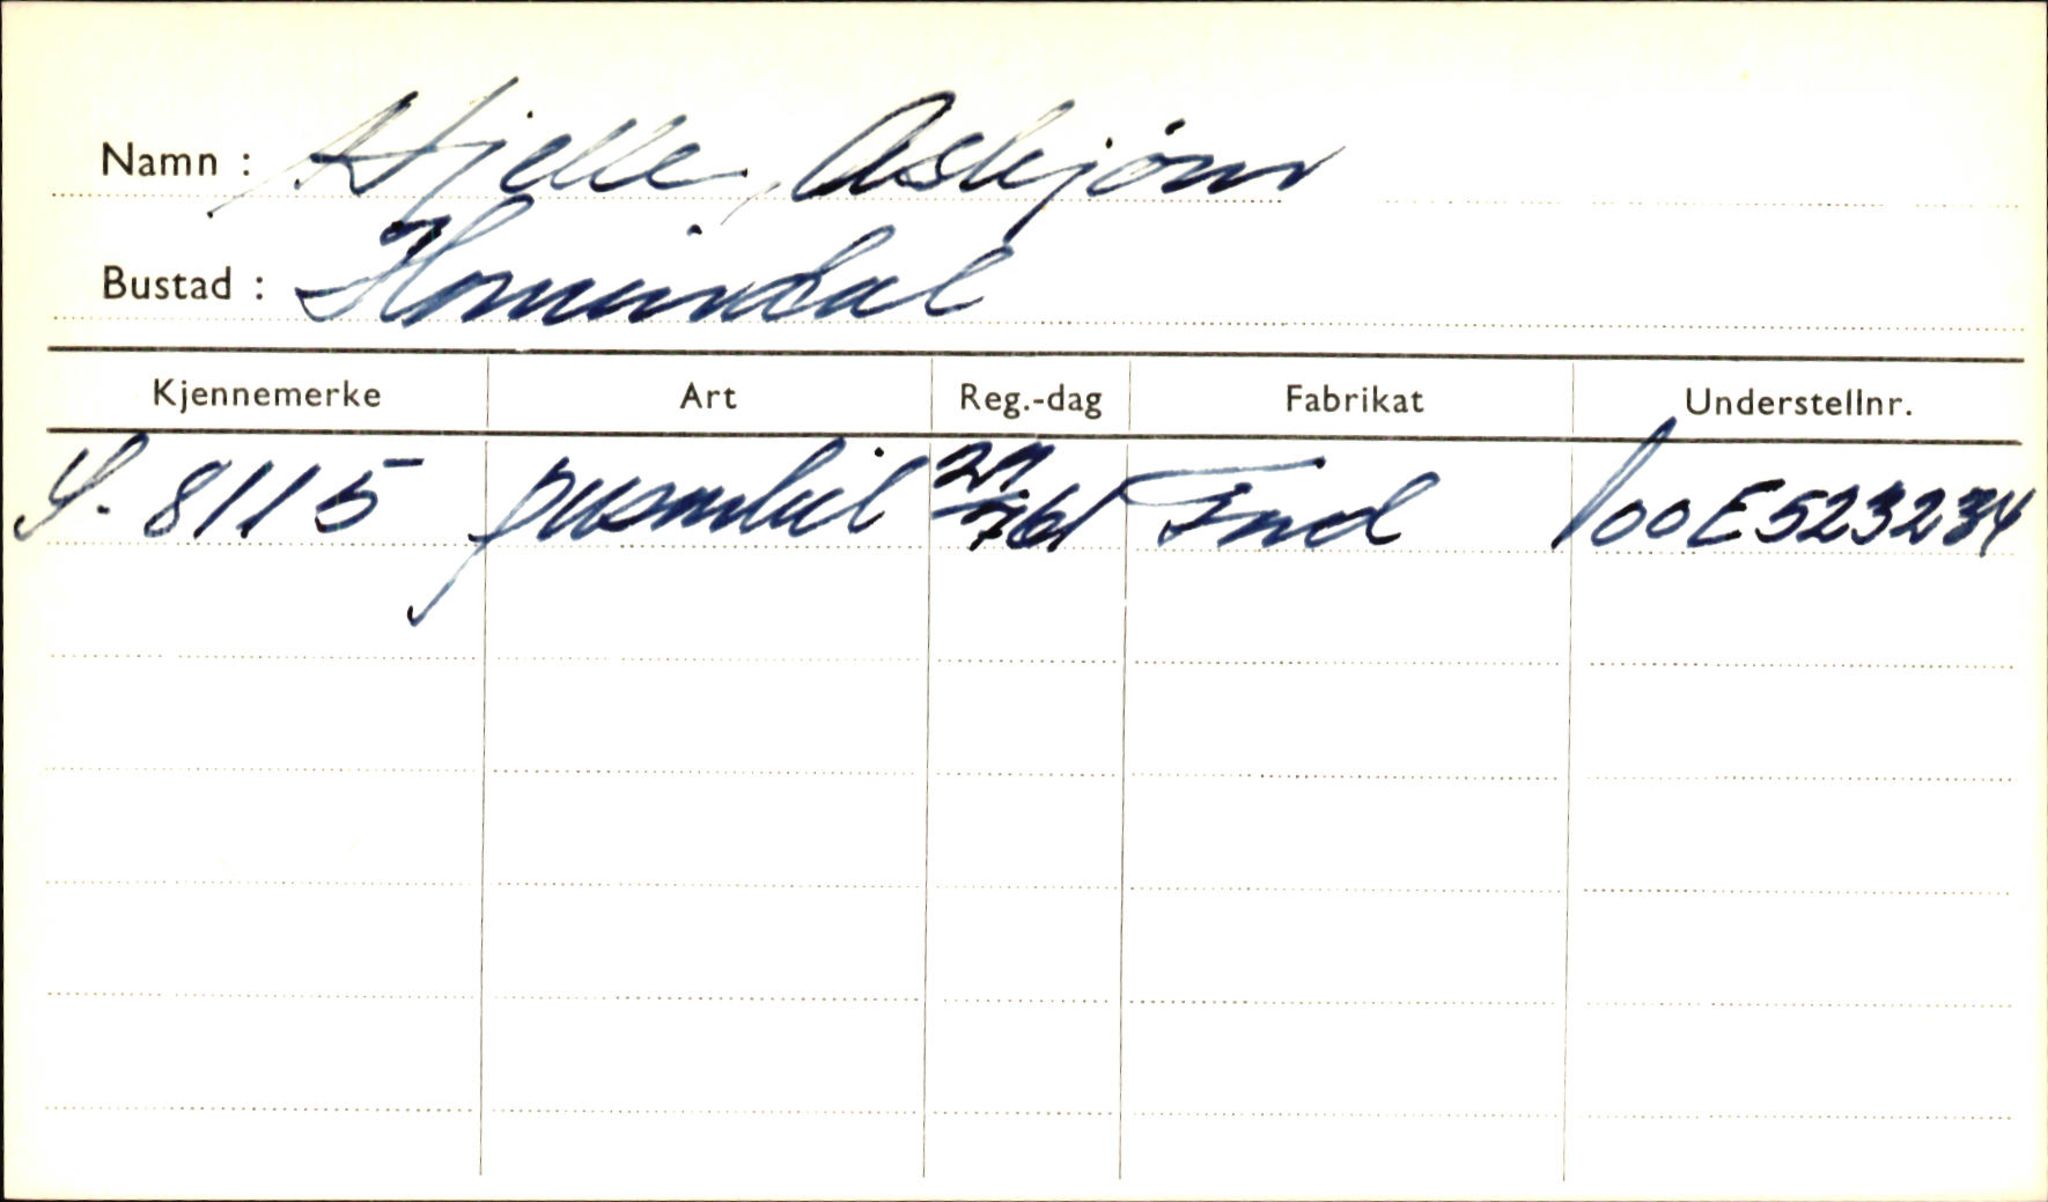 Namn : Hjelle, Askjørn
Bustad : Hornindal
Kjennemerke Art Reg.-dag Fabrikat Understellnr.
S. 8115 personbil 29/7 61 Ford 100E523234